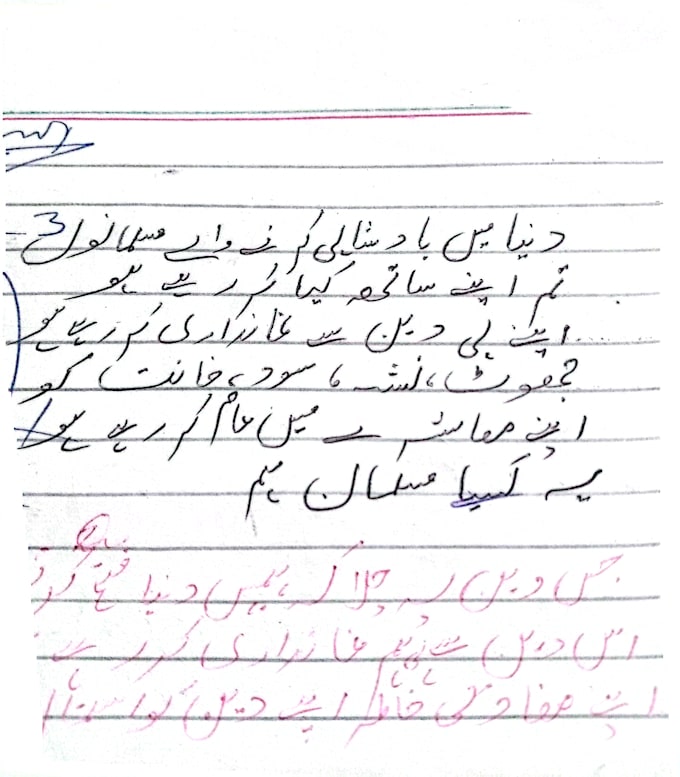 دنیا میں بادشاہی کرنے والے مسلمانوں 3
تم اپنے ساتھ کیا کر رہے ہو
اپنے ہی دین سے غانداری کر رہے ہو
جھوٹ، نشہ، سود، خانت کو
اپنے معاشرے میں عام کر رہے ہو
یہ کیسا مسلمان ہم
جس دین پہ چلا کر ہمیں دنیا فتح
اس دین سے ہم غانداری کر رہے
اپنے مفاد کی خاطر اپنے دین کو